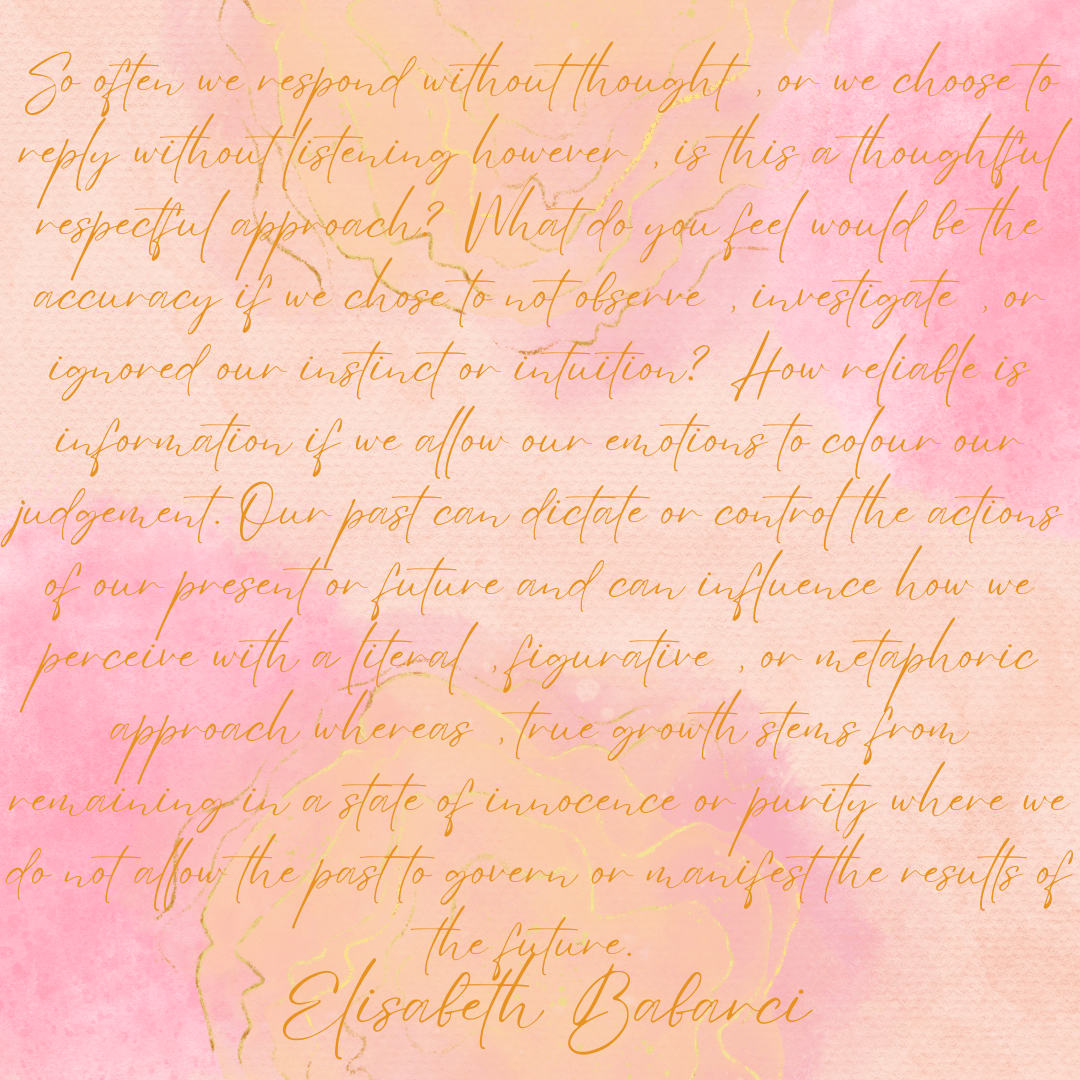 So often we respond without thought , or we choose to
reply without listening however , is this a thoughtful
respectful approach? What do you feel would be the
accuracy if we chose to not observe , investigate , or
ignored our instinct or intuition? How reliable is
information if we allow our emotions to colour our
judgement. Our past can dictate or control the actions
of our present or future and can influence how we
perceive with a literal , figurative , or metaphoric
approach whereas , true growth stems from
remaining in a state of innocence or purity where we
do not allow the past to govern or manifest the results of
the future.
Elisabeth Babarci